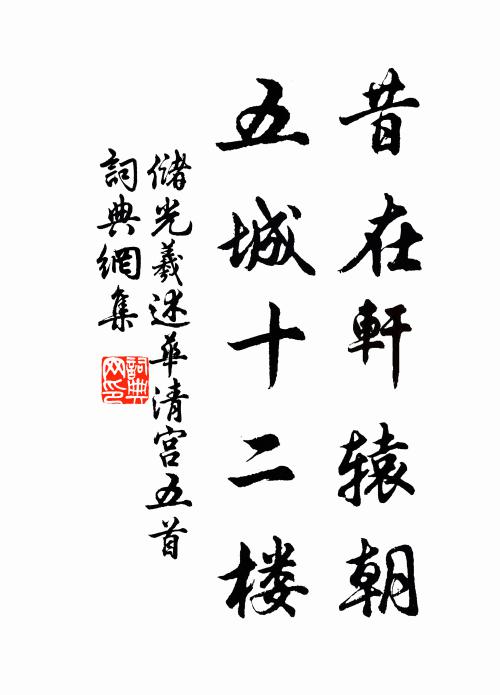 昔在軒辕朝
五城十二楼
儲光羲述華清宫五首
詞典網集
詞典網印